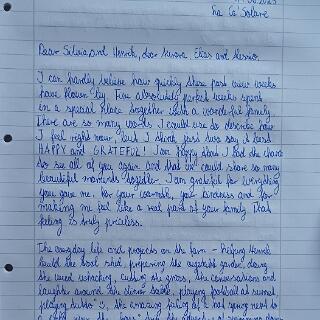 Ca' Solare
Dear Silvia and Henrik, dear Aurora, Elias and
I can hardly believe how quickly these past few weeks
have flown by. Five absolutely perfect weeks spent
in a special place together with a wonderful family.
There are so many words I could use to describe how
I feel right now, but I think just two say it best:
HAPPY and GRATEFUL! I am happy that I had the chance
to see all of you again and that we could share so many
beautiful moments together. I am grateful for everything
you gave me. For your warmth, your kindness and for
making me feel like a real part of your family. That
feeling is truly priceless.
The everyday life and projects on the farm - helping Henrik
build the boat shed, preparing the vegetable garden, doing
the weed whacking, cutting the grass, the conversations and
laughter around the dinner table, playing football at sunset
playing the amazing feeling of